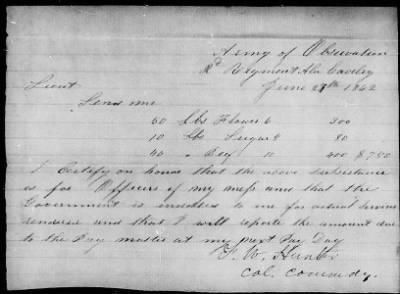 Army of Observation
2d Regiment Ala Cavalry
June 27th 1862
Lieut
Send me
50 lbs Flower 6 300
10 lbs Sugar 8 80
40 " Beef 10 400 $7.80
I Certify on honor that the above subsistance
is for Officers of my mess and that the
Government is indebted to me for actual Services
rendered and that I will reporte the amount due
to the Pay master at my next Pay Day
F. W. Hunter
Col. Commdg.